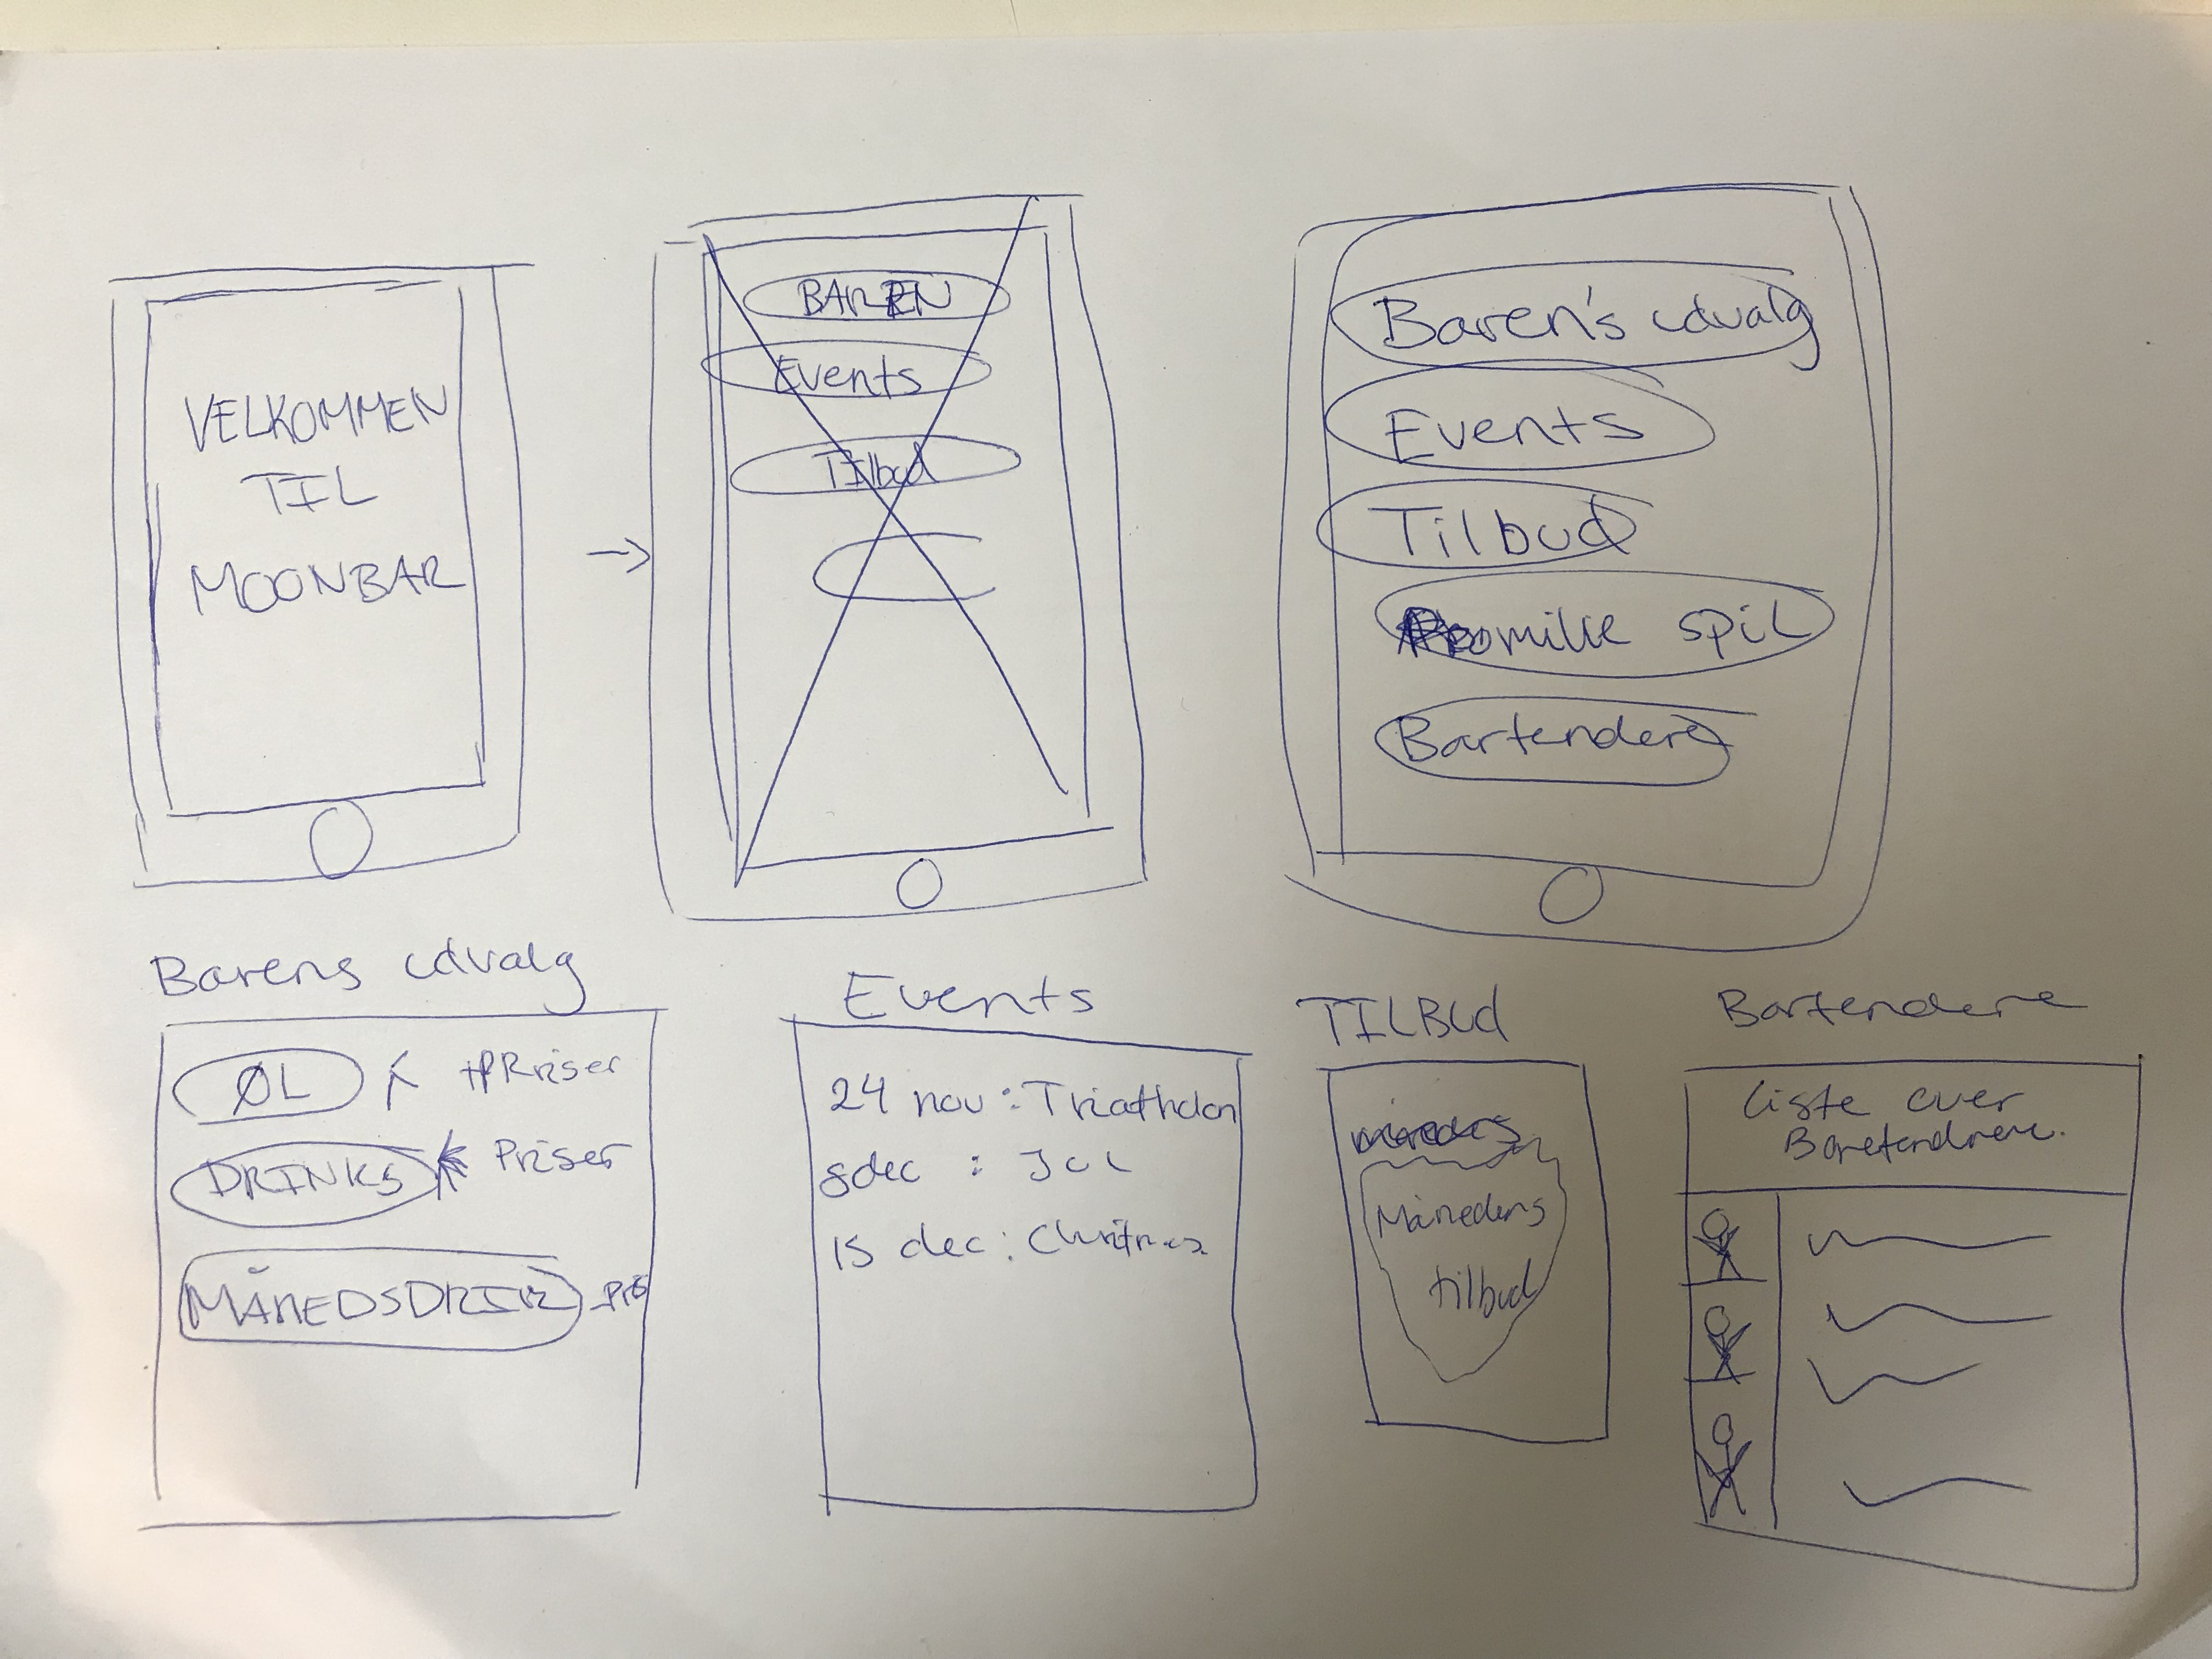 VELKOMMEN
TIL
MOONBAR
→
BAREN
Events
Tilbud
Baren's udvalg
Events
Tilbud
spil
Bartendere
Barens udvalg
ØL + PRiser
DRINKS Priser
Events
24 nov: Triathdon
8dec: JUL
15 dec:
TILBUD
Månedens
tilbud
Bartendere
liste over